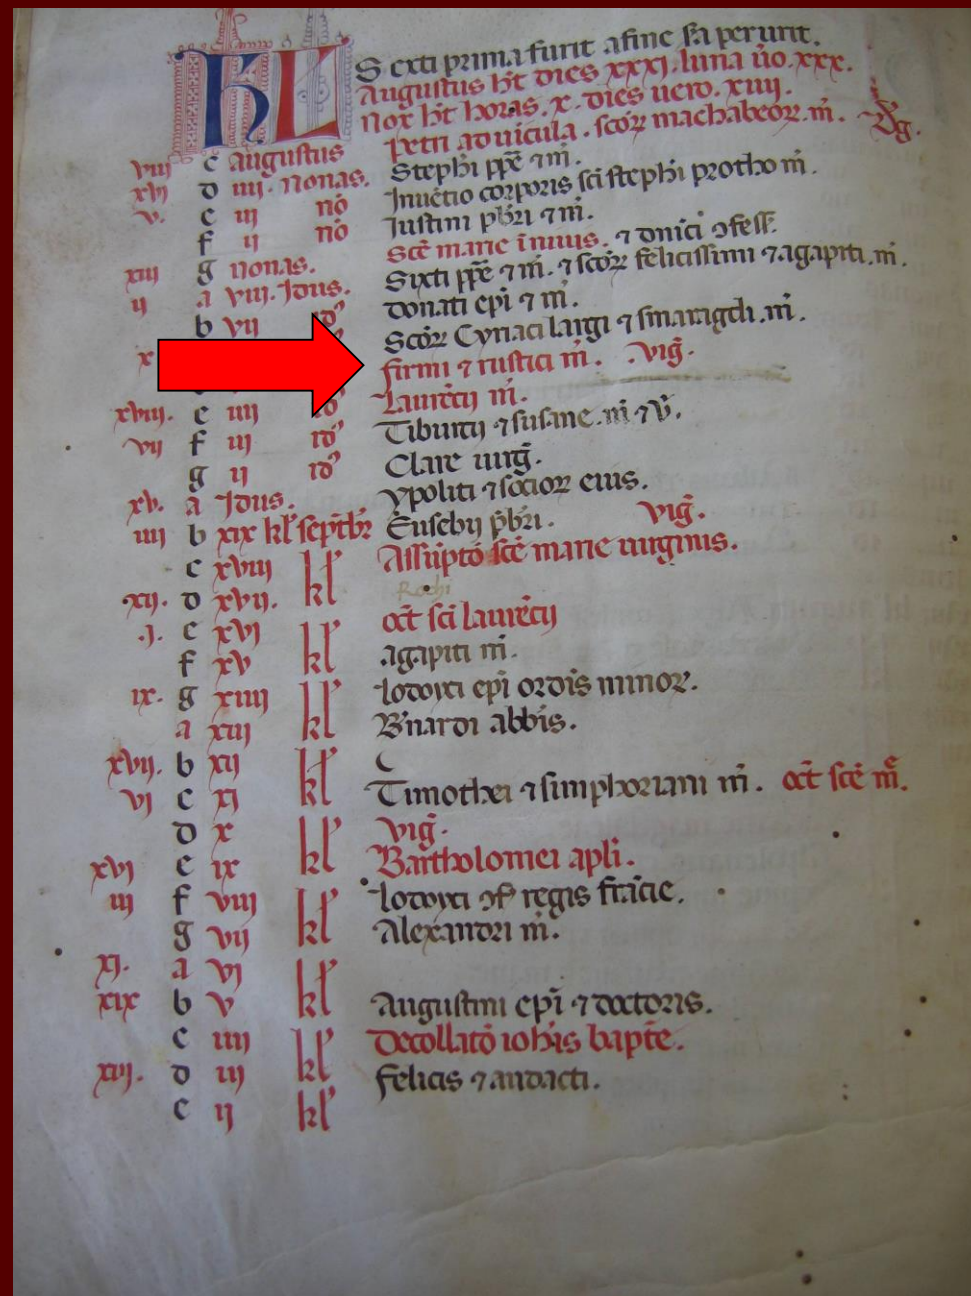 KL Sexti prima furit a fine sca perurit.
Augustus ht dies xxxi. luna uo. xxx.
Nox ht horas. x. dies uero. xiiii.
viii c augustus Petri ad uicula. scor machabeor. m. Vg.
xvi d iiii. nonas. Stephi ppe 7 m.
v. e iii no Inuetio corporis sci stephi protho m.
f ii no Iustini pbri 7 m.
xiii g nonas. Sce marie i niuis. 7 dnici ofess.
ii a viii. Idus. Sixti ppe 7 m. 7 scor felicissimi 7 agapiti. m.
b vii id donati epi 7 m.
x Scor Cyriaci largi 7 smaragdi. m.
firmi 7 rustici m. vig.
xviii. e iiii id Laurecij m.
vii f iii id Tiburtij 7 susane. m 7 v.
g ii id Clare uirg.
xv. a Idus. ypoliti 7 socior eius.
iiii b xix kl septbr Eusebij pbri. vig.
c xviii kl Assupto sce marie uirginis.
xii. d xvii. kl Rochi
.i. e xvi kl oct sci laurecij
f xv kl agapiti m.
ix. g xiiii kl lodoyci epi ordis minor.
a xiii kl B'nardi abbis.
xvii. b xii kl
vi c xi kl Timothei 7 simphoriani m. oct sce m.
d x kl vig.
xvi e ix kl Bartholomei apli.
iii f viii kl lodoyci of regis fracie.
g vii kl Alexandri m.
xi. a vi kl
xix b v kl Augustini epi 7 doctoris.
c iiii kl Decollato iohis bapte.
xvi. d iii kl felicis 7 audacti.
e ii kl